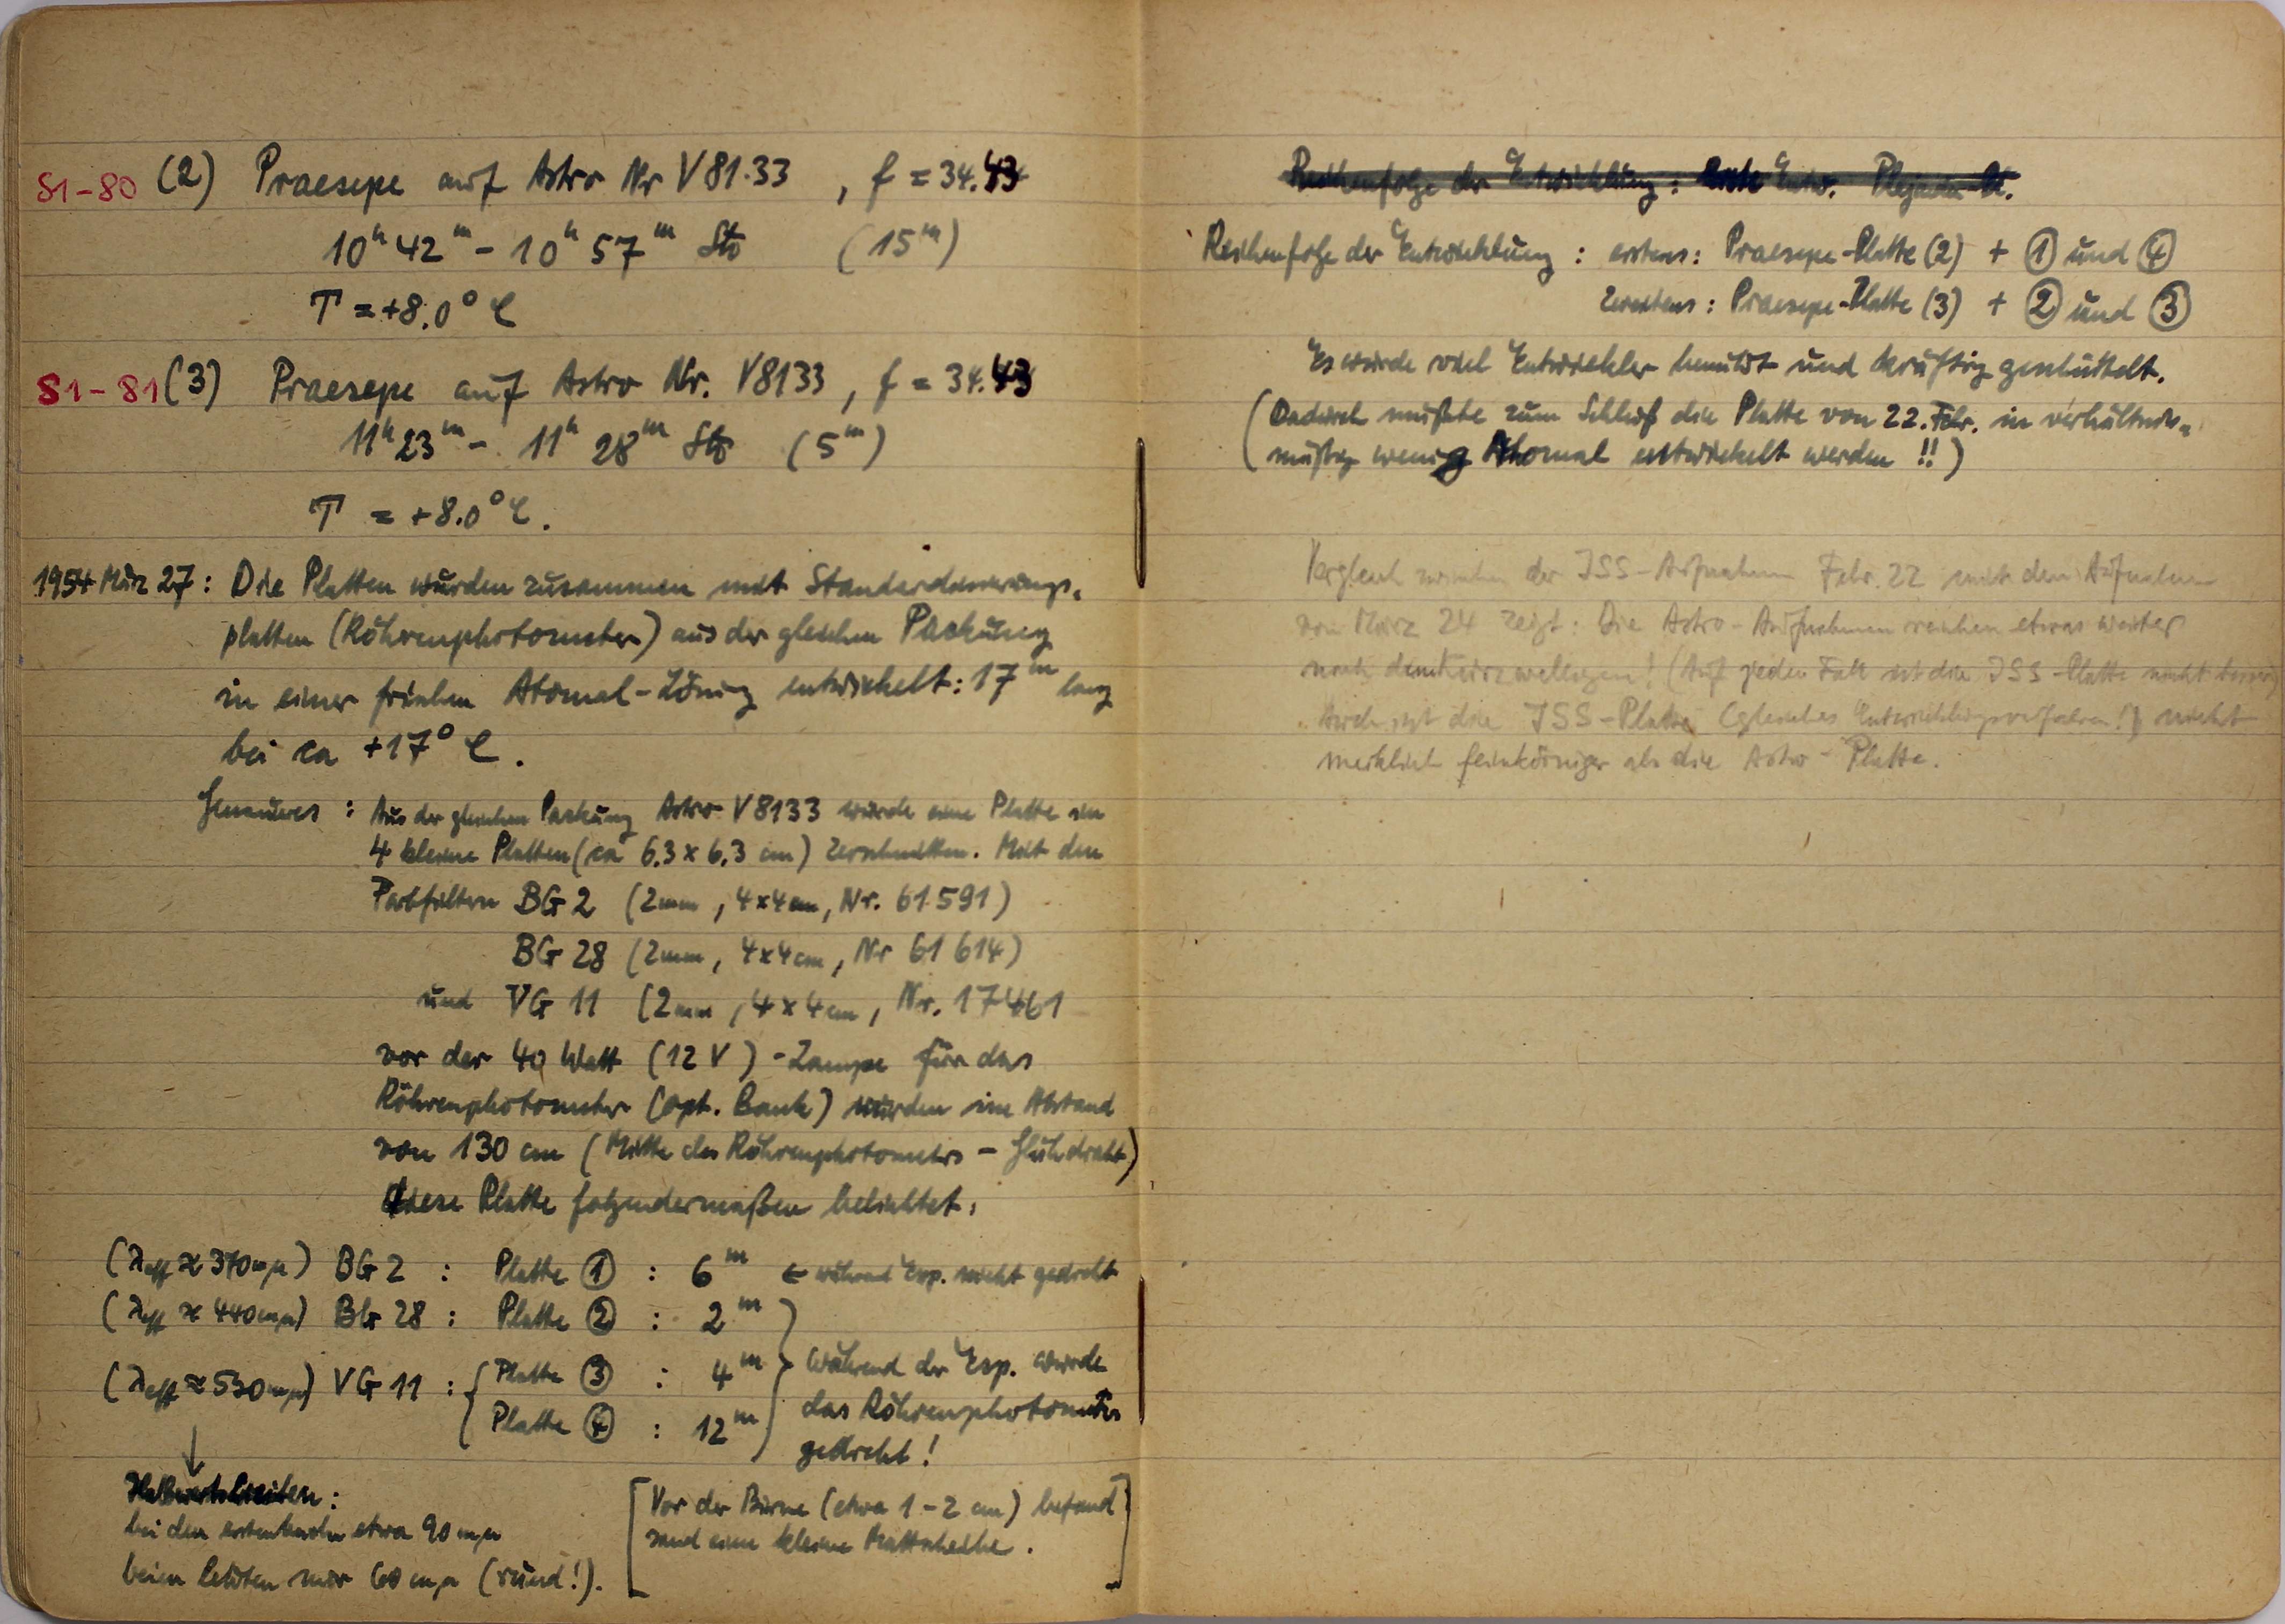 S1-80 (2) Praesepe auf Astro Nr V 81.33 , f = 34.43
10ʰ 42ᵐ - 10ʰ 57ᵐ (15ᵐ)
T = +8.0° C
S1-81 (3) Praesepe auf Astro Nr. V8133 , f = 34.43
11ʰ 23ᵐ - 11ʰ 28ᵐ (5ᵐ)
T = +8.0° C.
1954 März 27: Die Platten wurden zusammen mit Standardisierungs-
platten (Röhrenphotometer) aus der gleichen Packung
in einer frischen Atomal-Lösung entwickelt: 17ᵐ lang
bei ca +17° C.
Genaueres : Aus der gleichen Packung Astro V 8133 wurde eine Platte in
4 kleine Platten (ca 6.3 x 6.3 cm) zerschnitten. Mit den
Farbfiltern BG 2 (2mm, 4x4cm, Nr. 61591)
BG 28 (2mm, 4x4cm, Nr 61614)
und VG 11 (2mm, 4x4cm, Nr. 17461
vor der 40 Watt (12 V)-Lampe für das
Röhrenphotometer (opt. Bank) wurden im Abstand
von 130 cm (Mitte des Röhrenphotometers - Glühdraht)
diese Platte folgendermaßen belichtet:
(λeff ≈ 370mµ) BG 2 : Platte ① : 6ᵐ ← während Exp. nicht gedreht
(λeff ≈ 440mµ) BG 28 : Platte ② : 2ᵐ
(λeff ≈ 530mµ) VG 11 : { Platte ③ : 4ᵐ
Platte ④ : 12ᵐ
} Während der Exp. wurde
das Röhrenphotometer
gedreht!
↓
Halbwertsbreiten:
bei den ersten beiden etwa 90 mµ
beim letzten nur 60 mµ (rund!).
[Vor der Birne (etwa 1-2 cm) befand
sind eine kleine Mattscheibe.]
Reihenfolge der Entwicklung : Erste Entw. Plejaden-
Reihenfolge der Entwicklung : erstens: Praesepe-Platte (2) + ① und ④
zweitens: Praesepe-Platte (3) + ② und ③
Es wurde viel Entwickler benutzt und kräftig geschüttelt.
(Dadurch mußte zum Schluß die Platte von 22. Febr. in verhältnis-
mäßig wenig Atomal entwickelt werden !!)
Vergleich zwischen der ISS-Aufnahme Febr. 22 mit den Aufnahmen
von März 24 zeigt: Die Astro-Aufnahmen reichen etwas weiter
nach dem kurzwelligen! (Auf jeden Fall ist die ISS-Platte nicht besser)
Auch ist die ISS-Platte (gleiches Entwicklungsverfahren!) nicht
merklich feinkörniger als die Astro-Platte.